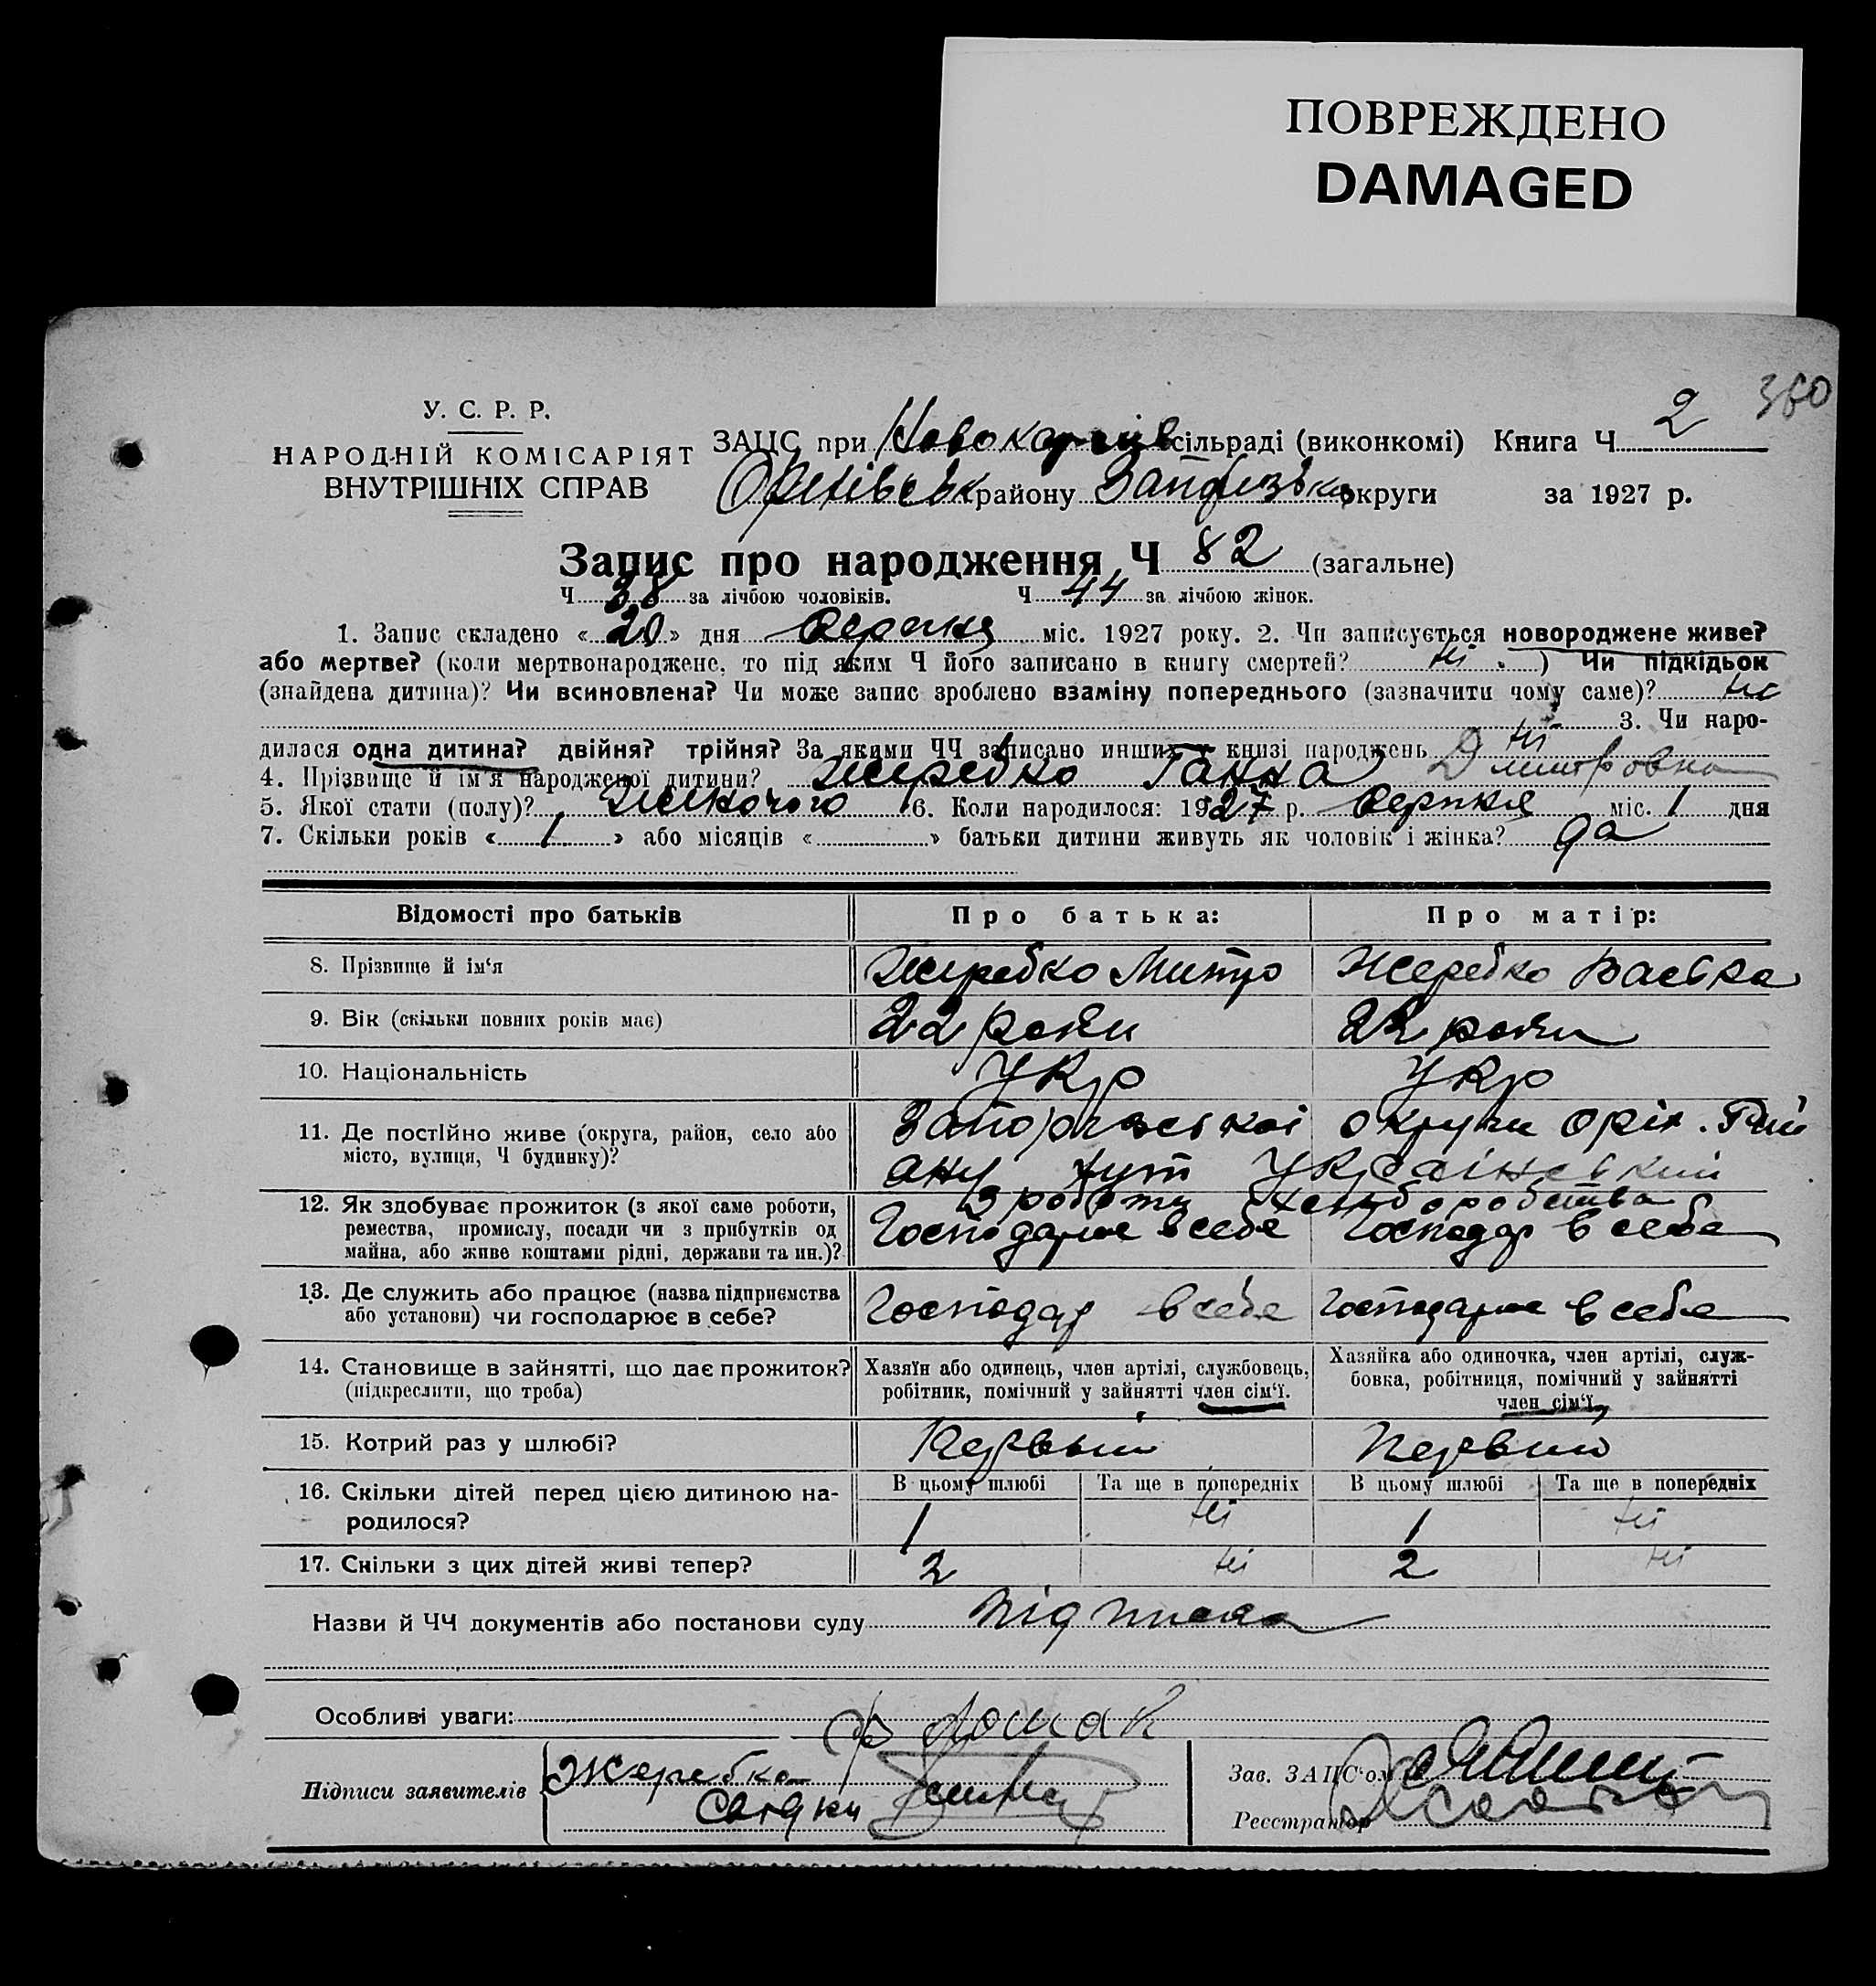 ПОВРЕЖДЕНО
DAMAGED
360
У. С. Р. Р.
НАРОДНІЙ КОМІСАРІЯТ
ВНУТРІШНІХ СПРАВ
ЗАЦС при сільраді (виконкомі) Книга Ч 2
Оріхівськ району округи за 1927 р.
Запис про народження Ч 82 (загальне)
Ч 38 за лічбою чоловіків. Ч 44 за лічбою жінок.
1. Запис складено «20» дня Серпня міс. 1927 року. 2. Чи записується новороджене живе?
або мертве? (коли мертвонароджене, то під яким Ч його записано в книгу смертей? ні.) Чи підкідьок
(знайдена дитина)? Чи всиновлена? Чи може запис зроблено взаміну попереднього (зазначити чому саме)? ні
3. Чи наро-
дилася одна дитина? двійня? трійня? За якими ЧЧ записано инших у книзі народжень ні
4. Прізвище й ім'я народженої дитини? Жеребко Ганна Дмитровна
5. Якої стати (полу)? Жіночого 6. Коли народилося: 1927 р. Серпня міс. 1 дня
7. Скільки років «1» або місяців « » батьки дитини живуть як чоловік і жінка? да
Відомості про батьків Про батька: Про матір:
8. Прізвище й ім‘я Жеребко Митро Жеребко
9. Вік (скільки повних років має) 22 роки 22 роки
10. Національність Укр Укр
11. Де постійно живе (округа, район, село або місто, вулиця, Ч будинку)? Запорізської округи Оріх. Рай
ону хут Український
12. Як здобуває прожиток (з якої саме роботи, ремества, промислу, посади чи з прибутків од майна, або живе коштами рідні, держави та ин.)? З роботи хліборобства
Господарює в себе Господар в себе
13. Де служить або працює (назва підприємства або установи) чи господарює в себе? Господар в себе Господарює в себе
14. Становище в зайнятті, що дає прожиток? (підкреслити, що треба) Хазяїн або одинець, член артілі, службовець, робітник, помічний у зайнятті член сім‘ї. Хазяйка або одиночка, член артілі, служ-
бовка, робітниця, помічний у зайнятті
член сім‘ї
15. Котрий раз у шлюбі? Первый Первий
16. Скільки дітей перед цією дитиною на-
родилося? В цьому шлюбі Та ще в попередніх В цьому шлюбі Та ще в попередніх
1 ні 1 ні
17. Скільки з цих дітей живі тепер? 2 ні 2 ні
Назви й ЧЧ документів або постанови суду підписка
Особливі уваги:
Підписи заявителів Жеребко
Свідки
Зав. ЗАЦС‘ом
Реєстратор